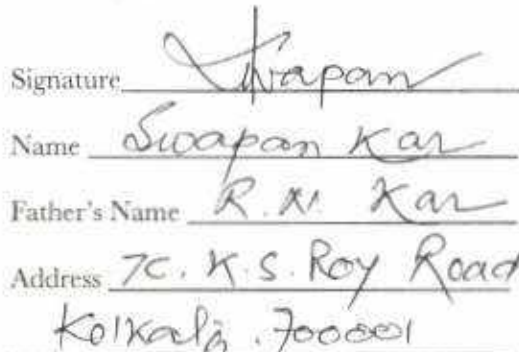 Signature Swapan
Name Swapan Kar
Father's Name R. N. Kar
Address 7C. K. S. Roy Road
Kolkata. 700001